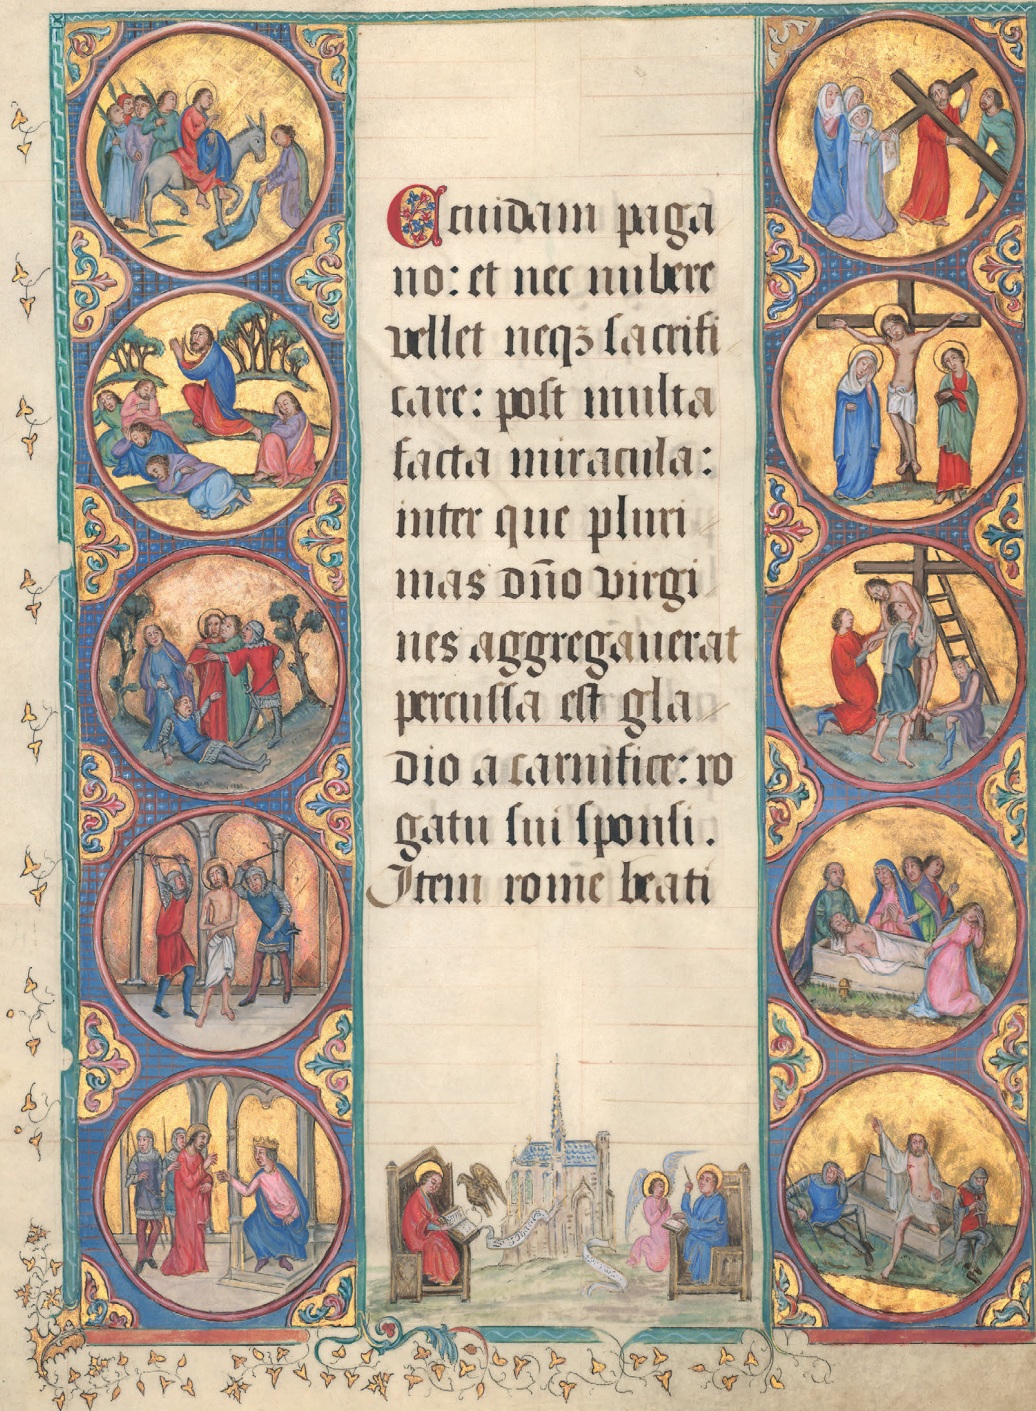 A cuidam paga
no: et nec nubere
vellet neqȝ sacrifi
care: post multa
facta miracula:
inter que pluri
mas dn̄o virgi
nes aggregauerat
percussa est gla
dio a carnifice: ro
gatu sui sponsi.
Item rome beati